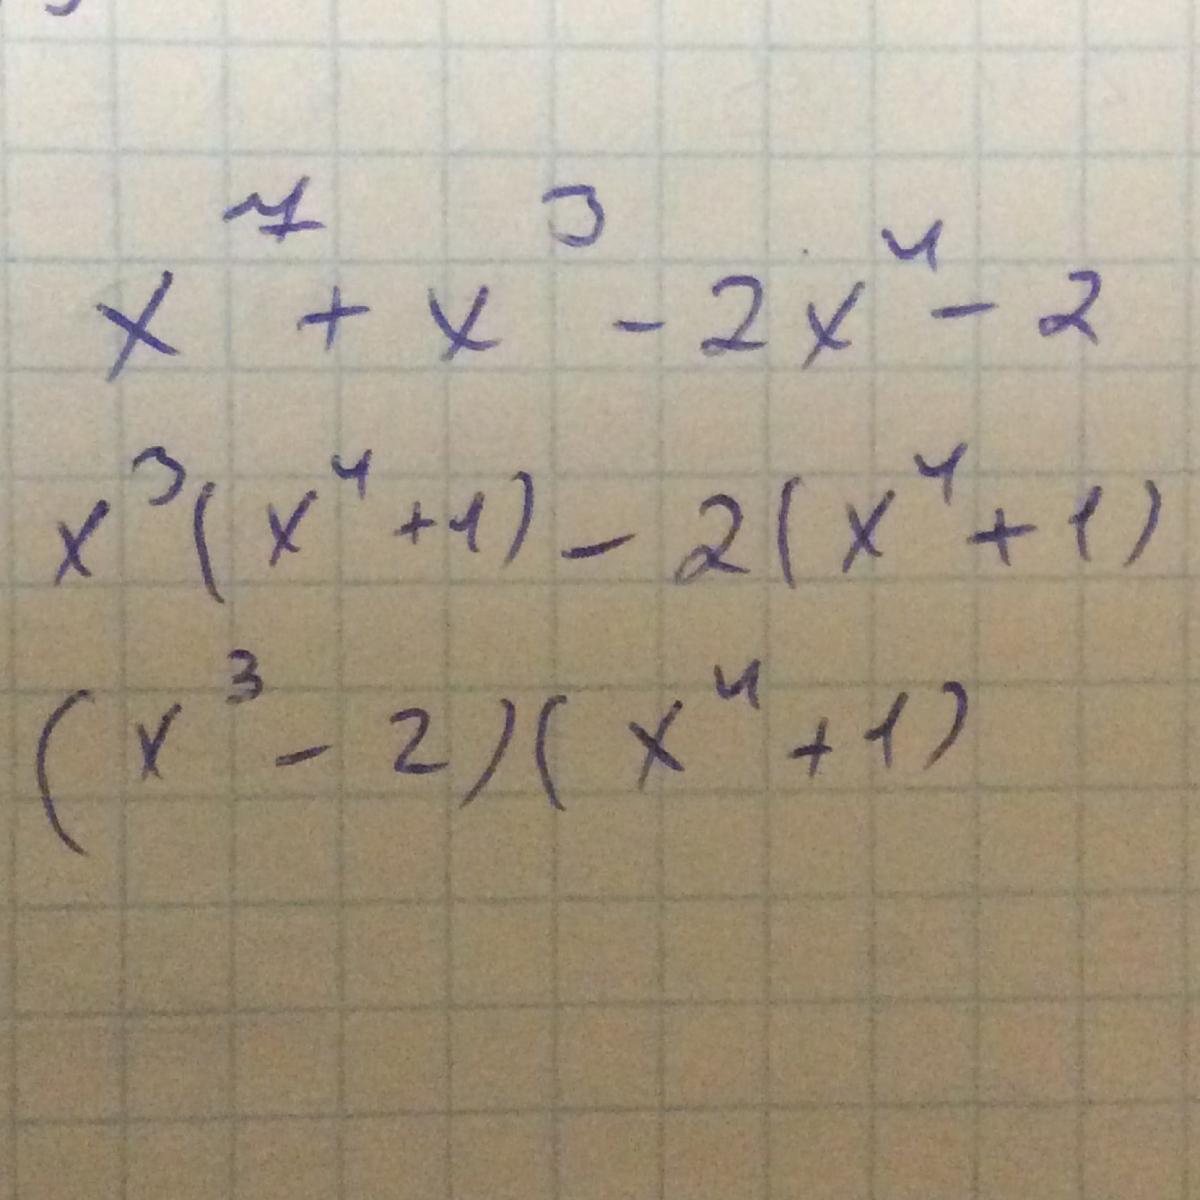 x⁷ + x³ - 2x⁴ - 2
x³(x⁴ + 1) - 2(x⁴ + 1)
(x³ - 2)(x⁴ + 1)